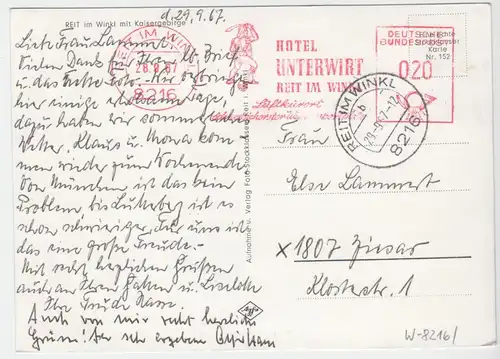 REIT im Winkl mit Kaisergebirge
d. 29.9.67.
Liebe Frau Lammert,
Vielen Dank für Ihren lb. Brief
und das Foto. Wir verbringen
hier einige Tage,
dazu haben wir
Wetter, Klaus u. Mona kom-
men wieder zum Wochenende
Von München ist das kein
Problem, bis ist es
schon schwieriger. Für uns ist
das eine große Freude.
Mit recht herzlichen Grüßen
auch an Ihren Gatten u. Liselotte
Ihre
Auch von mir recht herzliche
Grüße! Ihr sehr ergebener
Aufnahme u. Verlag Foto-Stockklauser Reit i.
REIT IM WINKL
28.9.67
8216
HOTEL
UNTERWIRT
REIT IM WINKL
Luftkurort
DEUTSCHE
BUNDESPOST
020
Eine echte
Stockklauser
Karte
Nr. 152
REIT IM WINKL
b
29.-9.67.-12
8216
Frau
Else Lammert
x 1807 Ziesar
Klosterstr. 1
W-8216/